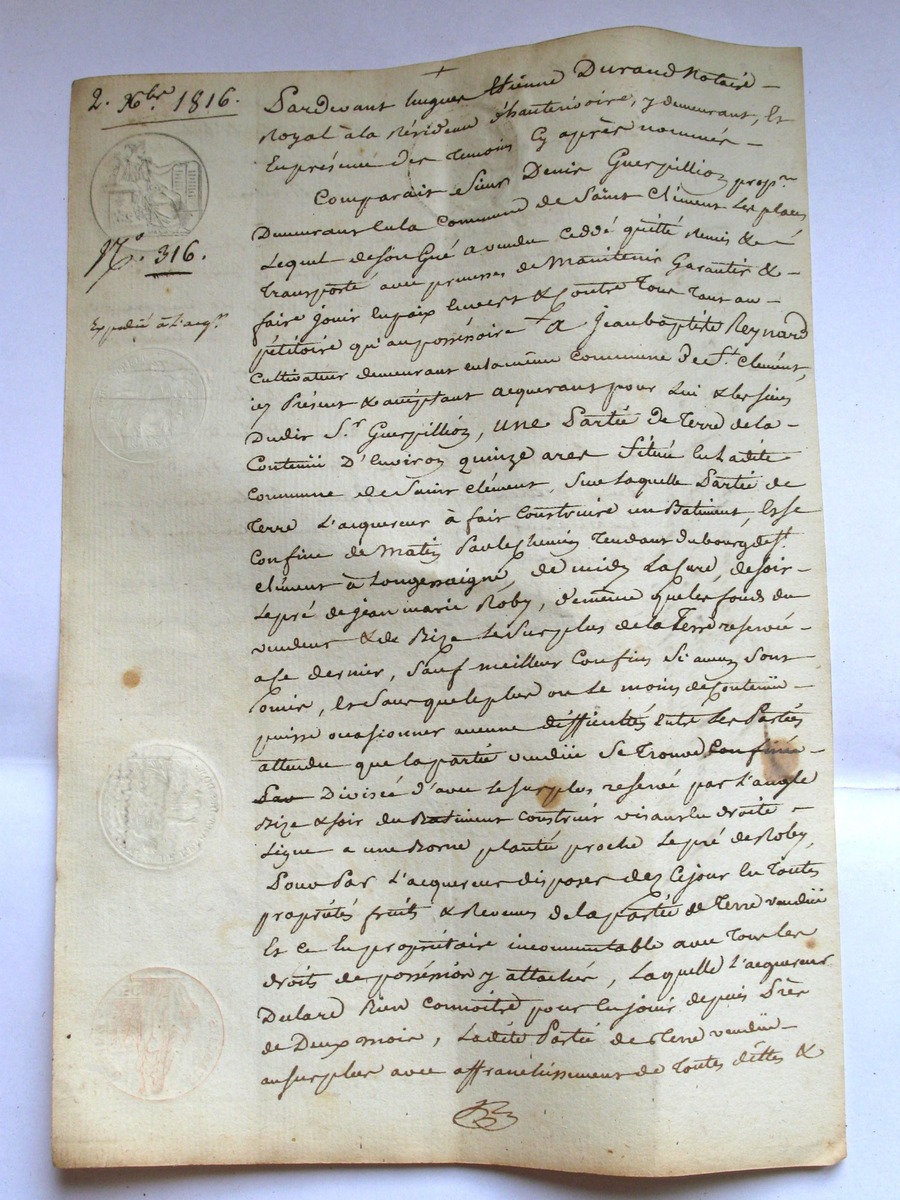 2. Xbre 1816.
N.o 316.
Expedié à l'acqr.
Pardevant hugues Etienne Durand Notaire
Royal à la Résidence d'hauterivoire, y demeurant, Et
En présence des Temoins Cy après nommés
Comparait Sieur Denis Guerpillion propre
Demeurant en la Commune de Saint Clément les places
Lequel de son Gré a vendu ceddé quitté Remis &
Transporté avec promesses de Maintenir Garantir &
faire jouir en paix Envers & Contre Tous Tant au
pétitoire qu'au possessoire A jean baptiste Reynard
Cultivateur demeurant en la même Commune De St. Clément,
icy Présent & acceptant acquerant pour Lui & les siens
Dudit Sr. Guerpillion, une Partie de Terre de la
Contenüe D'Environ quinze ares Située en Ladite
Commune de Saint Clément, Sur Laquelle Partie de
Terre L'acquereur à fait Construire un Batiment, Et se
Confine de matin par le Chemin Tendant du bourg de St.
Clément à Longessaigne, de midy La Cure, de soir
Le pré de jean marie Roby, de même que les fonds du
vendeur & de Bize Le Surplus de la Terre reservée
a ce dernier, Sauf meilleur Confins Si aucuns Sont
omis, Et Sans que le plus ou le moins de Contenüe
puisse occasionner aucune difficultés Entre Les Parties
attendu que la partie vendüe Se Trouve Confinée
Par Divisée d'avec le surplus reservé par L'angle
Bize & soir du Batiment Construit visant en droite
Ligne a une Borne plantée proche Le pré de Roby,
Pour Par L'acquereur disposer dez Ce jour En Toutes
propriétés fruits & Revenus de la partie de Terre vendüe
Et ce En propriétaire incommutable avec Tous les
droits de possession y attachés, Laquelle L'acquereur
Declare Bien Connoitre pour En jouir depuis Près
de Deux mois, Ladite Partie de Terre vendüe
au surplus avec affranchissement de Toutes dettes &